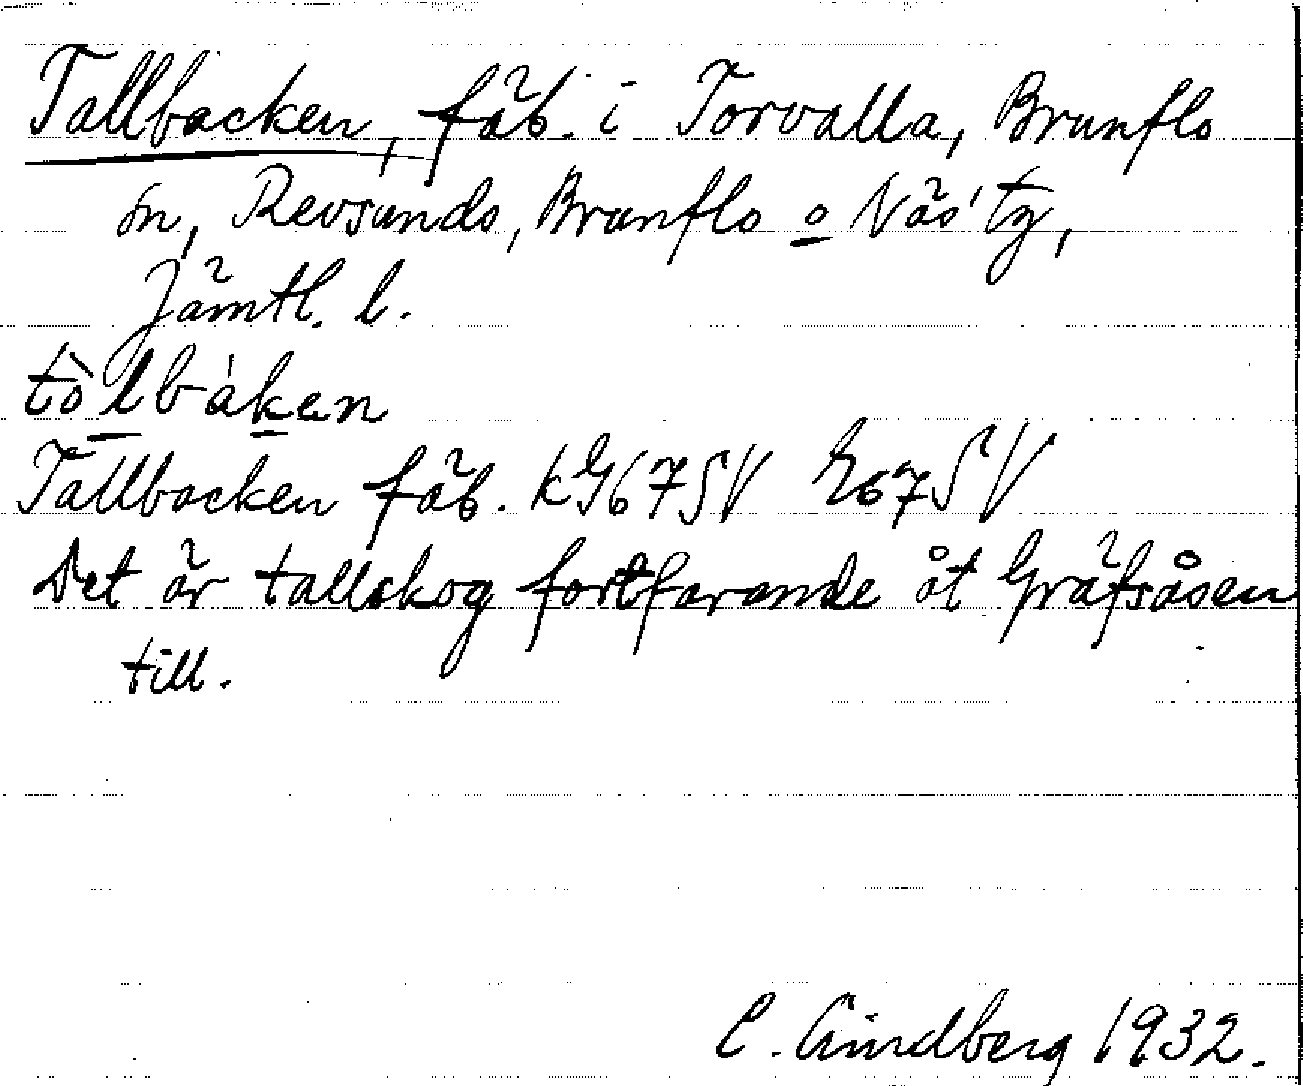 Tallbacken, fäb. i Torvalla, Brunflo
sn, Revsunds, Brunflo o Näs' tg,
Jämtl. l.
tòlbáken
Tallbacken fäb. kG67SV E67SV
Det är tallskog fortfarande åt Gräfsåsen
till.
C. Lindberg 1932.